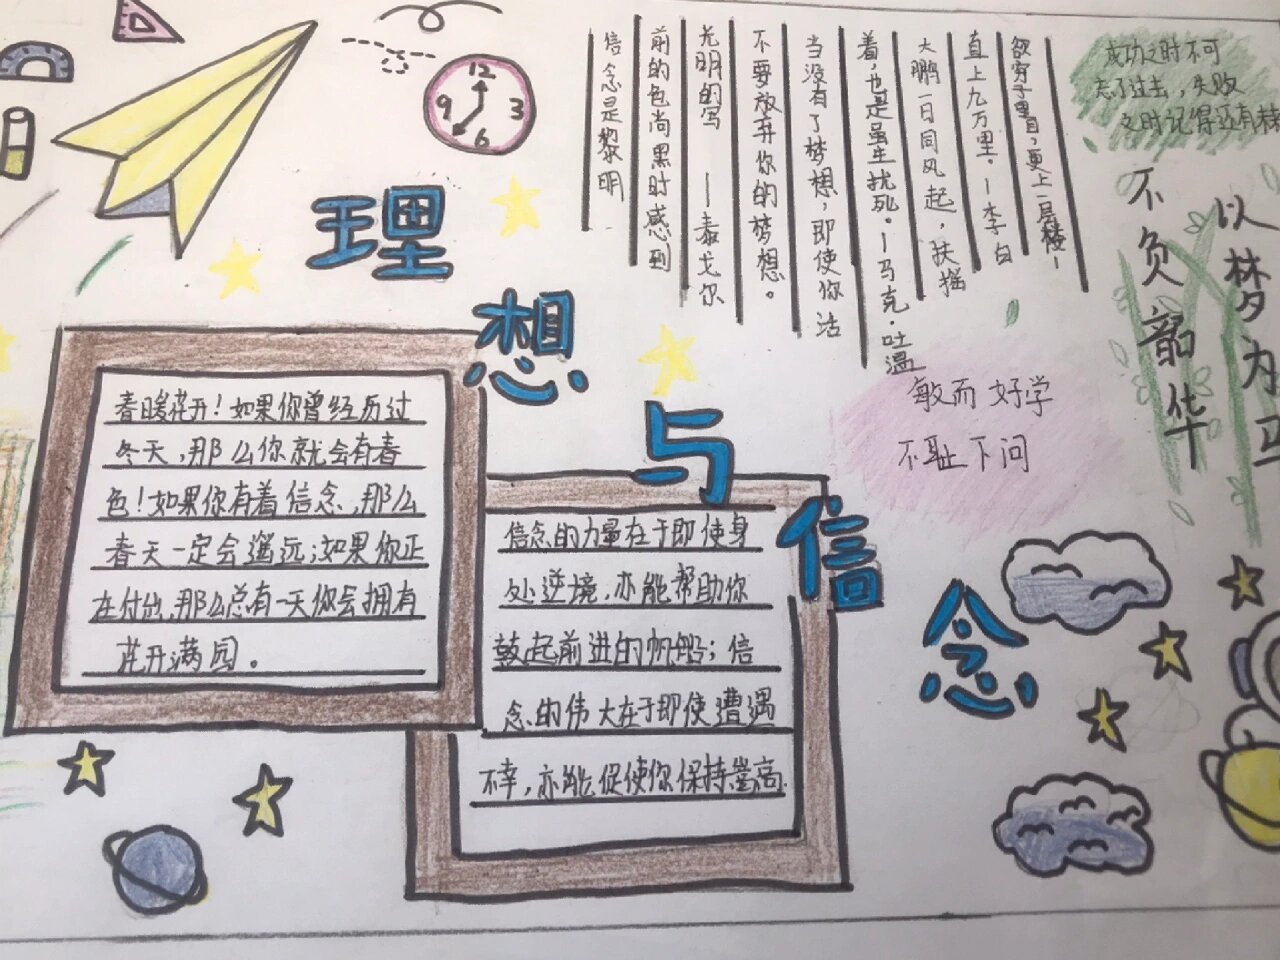 理想与信念
12
3
6
9
欲穷千里目，更上一层楼。
直上九万里。—李白
大鹏一日同风起，扶摇
着，也是虽生犹死。—马克·吐温
当没有了梦想，即使你活
不要放弃你的梦想。
光明的鸟 ——泰戈尔
前的色尚黑时感到
信念是黎明
成功之时不可
忘了过去，失败
之时记得还有
以梦为马
不负韶华
敏而好学
不耻下问
春暖花开！如果你曾经历过
冬天，那么你就会有春
色！如果你有着信念，那么
春天一定会遥远；如果你正
在付出，那么总有一天你会拥有
花开满园。
信念的力量在于即使身
处逆境，亦能帮助你
鼓起前进的帆船；信
念的伟大在于即使遭遇
不幸，亦能促使你保持崇高